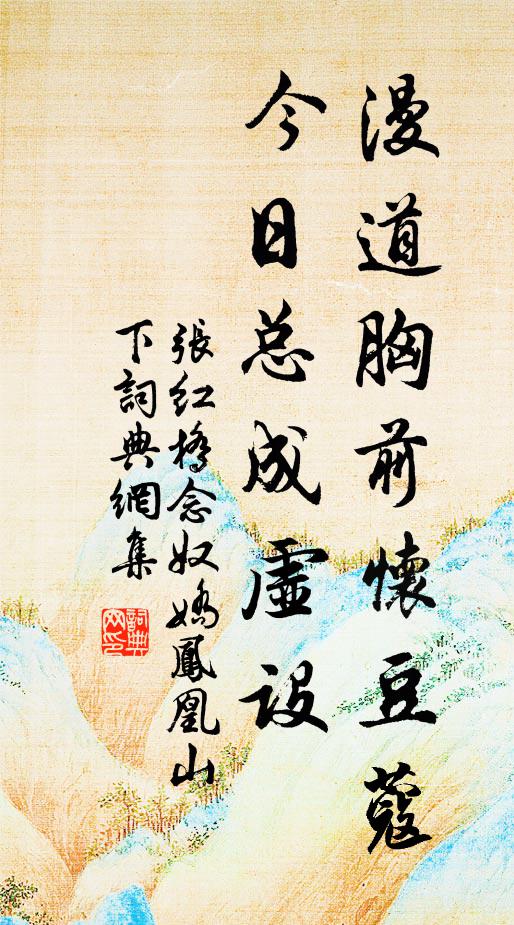 漫道胸前懷豆蔻
今日总成虛设
張红橋念奴嬌鳳凰山
下詞典網集
詞典
网印